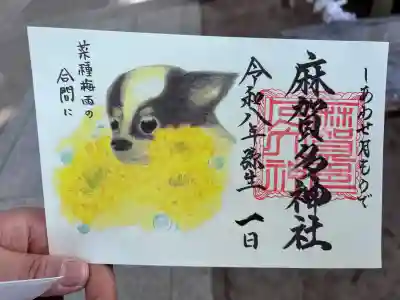 しあわせ月もうで
麻賀多神社
令和八年弥生一日
菜種梅雨の
合間に